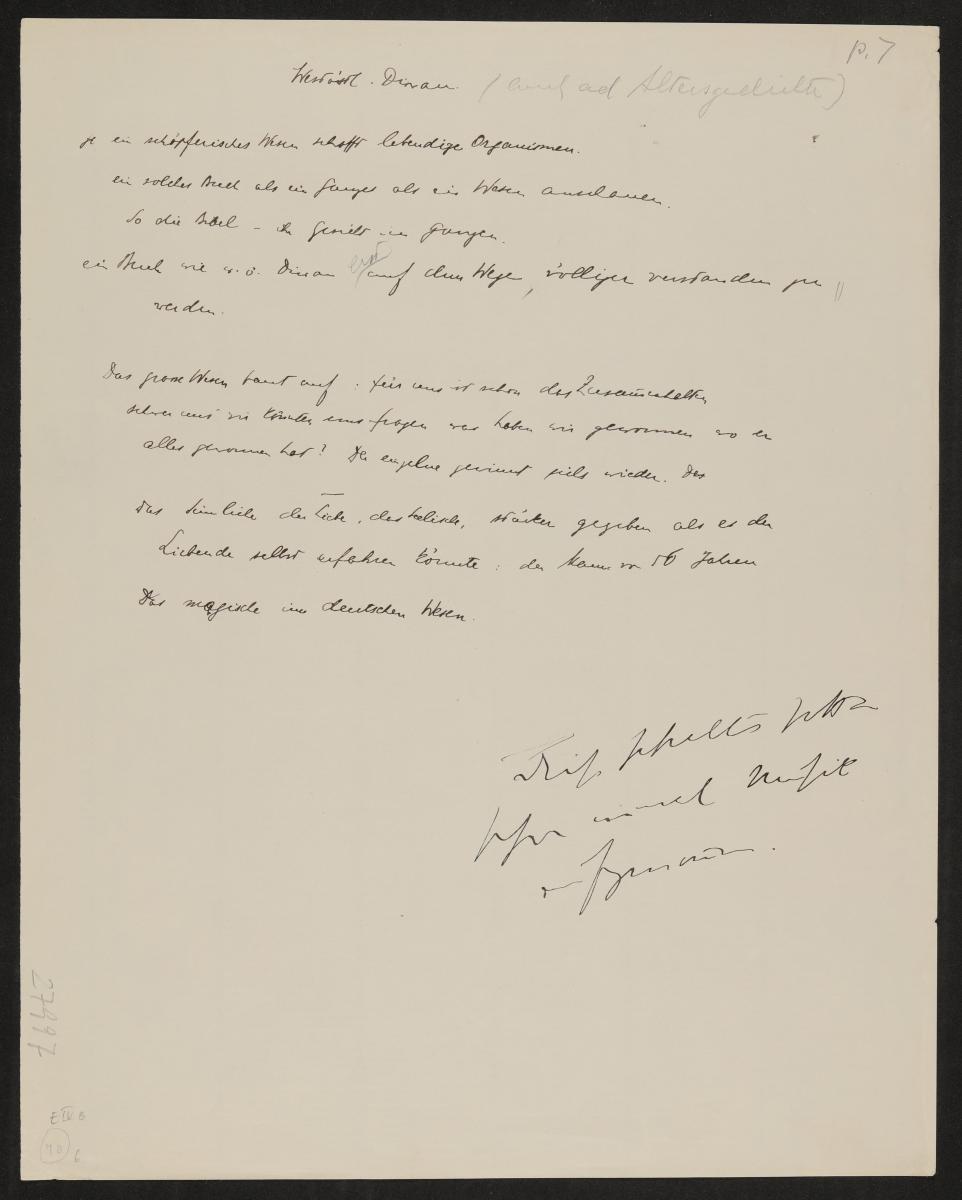 p. 7
Westöstl. Divan. (auch ad Altersgedichte)
je ein schöpferisches Wesen schafft lebendige Organismen.
ein solches Buch als ein Ganzes als ein Wesen anschauen.
So die Bibel – ihr Gesicht im Ganzen.
ein Buch wie w. ö. Divan erst auf dem Wege, völliger verstanden zu
werden.
Das grosse Wesen baut auf: für uns ist schon das Zusammenhalten
schwer und wir könnten uns fragen was haben wir gewonnen wo er
alles gewonnen hat? Der einzelne gewinnt sich wieder. Das
Das sinnliche der Liebe, das seelische, stärker gegeben als es der
Liebende selbst erfahren könnte: der Mann von 56 Jahren
Das magische im deutschen Wesen.
Musik
27997
E IV B
70
6